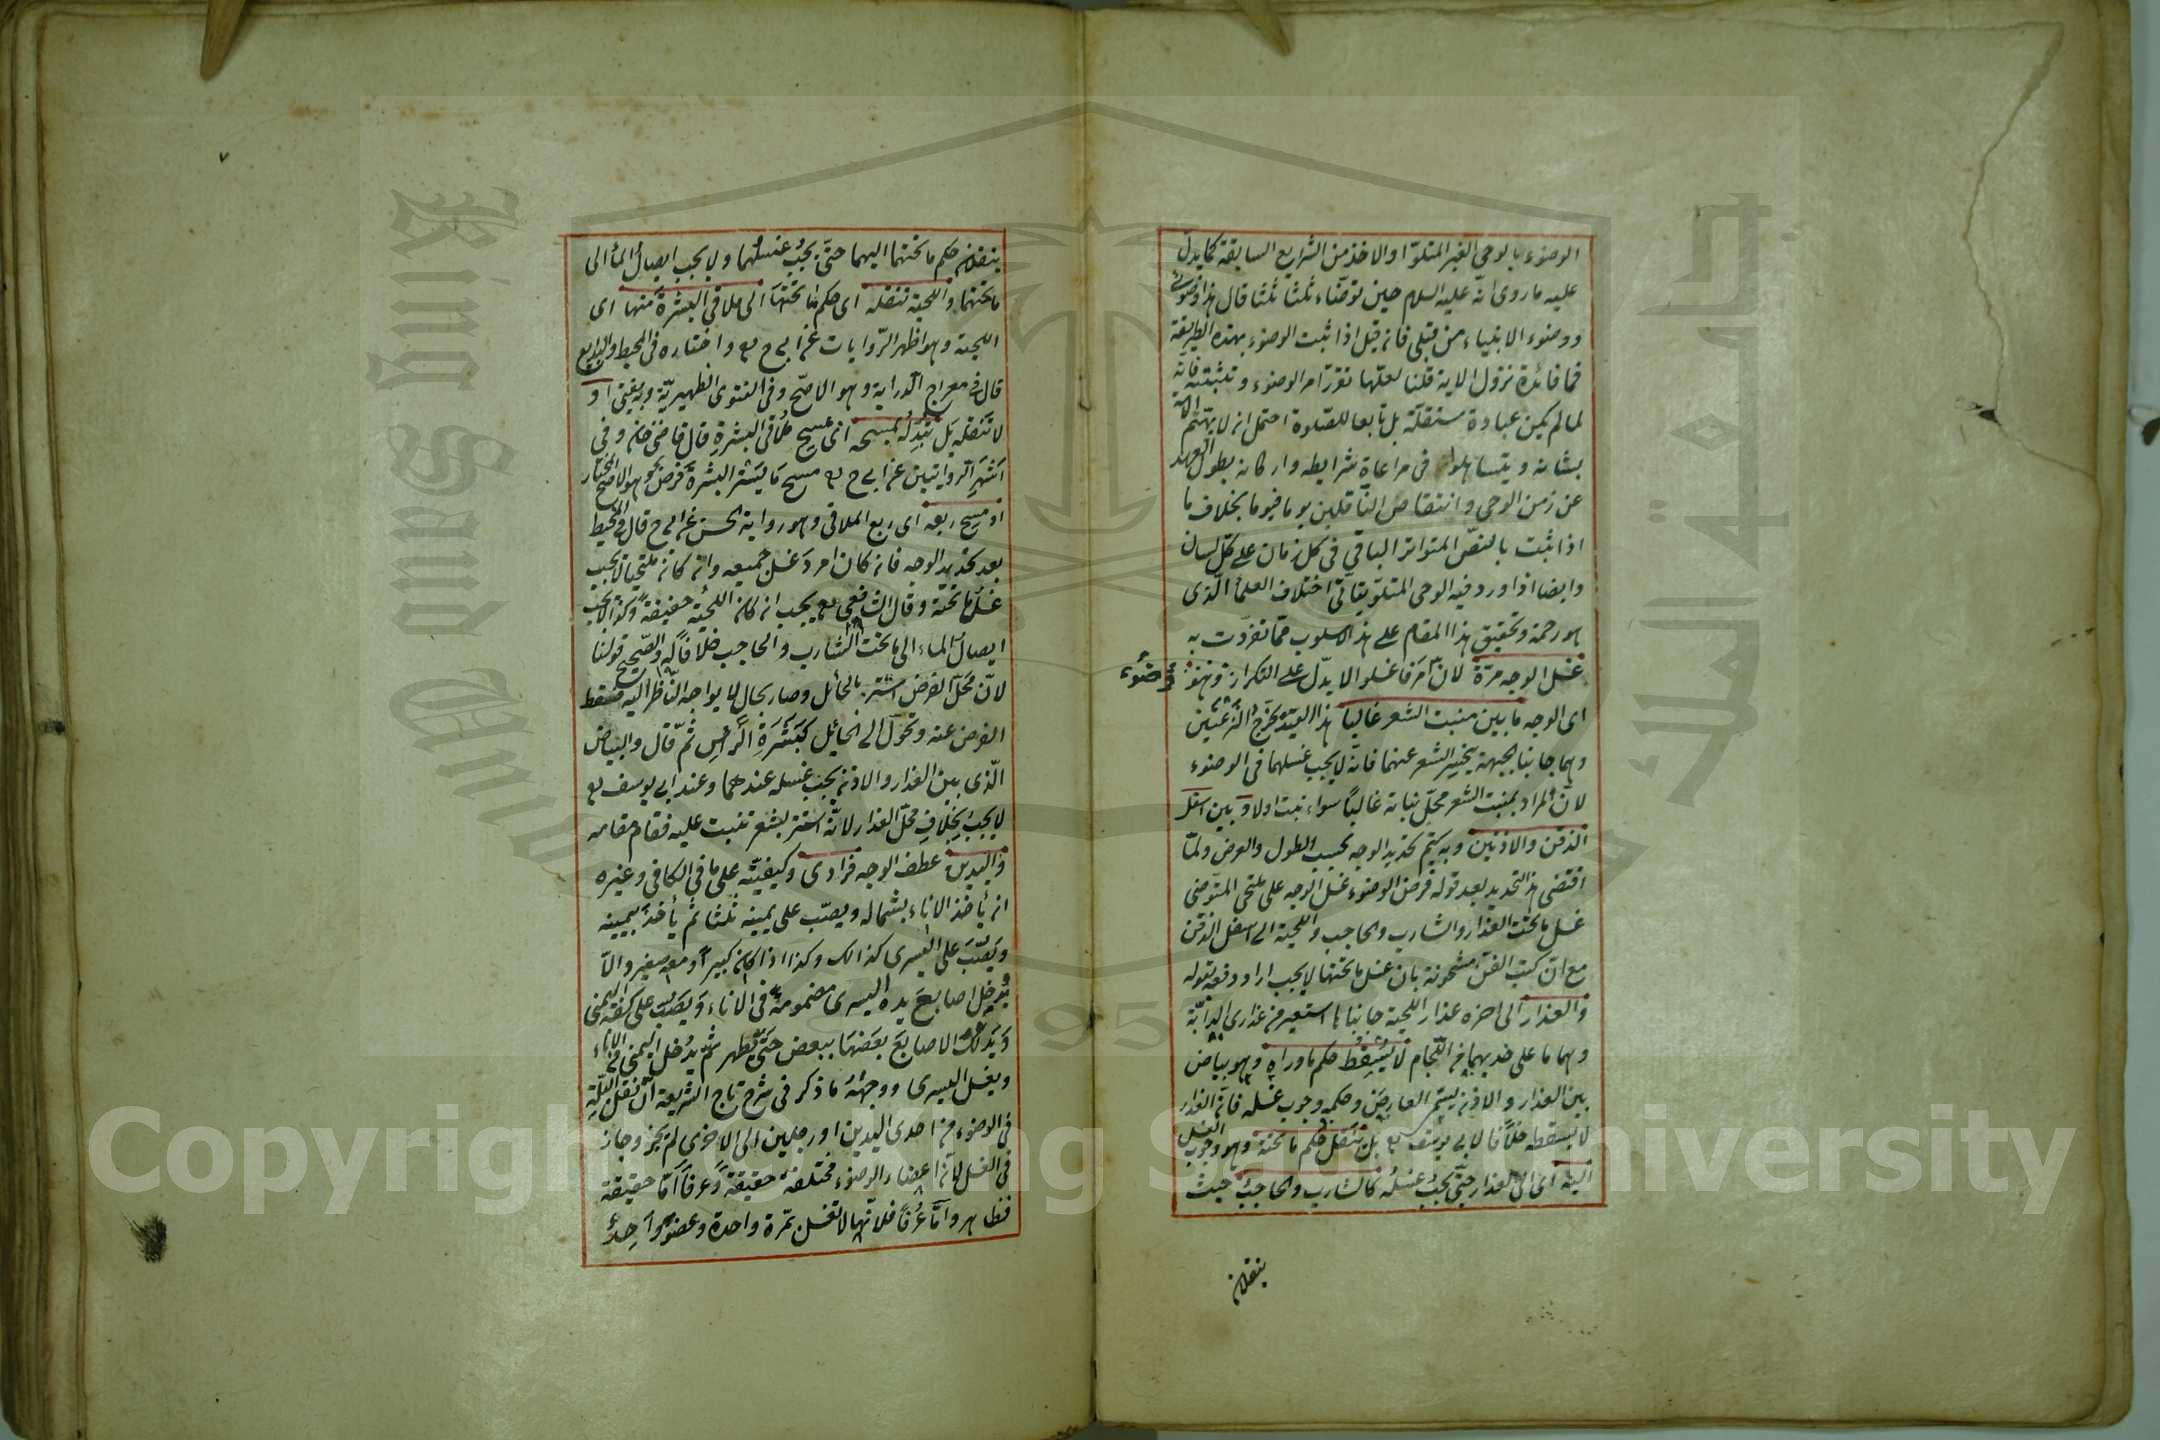 الوضوء بالوحي الغير المتلو او الاخذ من الشرايع السابقة كما يدل
عليه ما روى انه عليه السلام حين توضاء ثلثا ثلثا قال هذا وضوئى
ووضوء الانبياء من قبلى فان قيل اذا ثبت الوضوء بهذه الطريقة
فما فائدة نزول الاية قلنا لعلها تقرر امر الوضوء وتثبته فانه
لما لم يكن عبادة مستقلة بل تابعا للصلوة احتمل ان لا يهتم الامة
بشانه ويتساهلوا فى مراعاة شرايطه واركانه بطول العهد
عن زمن الوحى وانتقاص الناقلين يوما فيوما بخلاف ما
اذا ثبت بالنص المتواتر الباقي فى كل زمان على كل لسان
وايضا اذا ورد فيه الوحى المتلو يتأتى اختلاف العلما الذى
هو رحمة وتحقيق هذا المقام على هذا الاسلوب مما تفردت به
غسل الوجه مرة لان امر فاغسلوا لا يدل على التكرار
اى الوجه ما بين منبت الشعر غالبا هذا القيد يخرج النزعتين
وهما جانبا الجبهة ينحسر الشعر عنهما فانه لا يجب غسلهما فى الوضوء
لان المراد بمنبت الشعر محل نباته غالبًا سواء نبت اولا وبين اسفل
الذقن والاذنين وبه يتم تحديد الوجه بحسب الطول والعرض ولما
اقتضى هذا التحديد بعد قوله فرض الوضوء غسل الوجه على ملتحى المتوضى
غسل ما تحت العذار والشارب والحاجب واللحية الى اسفل الذقن
مع ان كتب الفن مشحونة بان غسل ما تحتها لا يجب اراد دفعه بقوله
والعذار الى اخره عذار اللحية جانباها استعير من عذارى الدابة
وهما ما على خديها من اللجام لا يُسْقِطُ حكم ما وراه وهو بياض
بين العذار والاذن يسمى العارض وحكمه وجوب غسله فان العذار
لا يسقطه خلافا لابى يوسف بل تنقل حكم ما تحته وهو وجوب الغسل
اليه اى الى العذار حتى يجب غسله كالشارب والحاجب حيث
ينقلان
ينقلان حكم ما تحتهما اليهما حتى يجب غسلهما ولا يجب ايصال الما الى
ما تحتهما واللحية تنقله اى حكم ما تحتها الى ملاقى البشرة منها اى
اللحية وهو اظهر الروايات عن ابى ح واختاره فى المحيط والبدايع
قال فى معراج الدراية وهو الاصح وفى الفتوى الظهيرية وبه يفتى او
لا تنقله بل تبدله بمسحه اى مسح ملاقى البشرة قال قاضى خان وفى
اشهر الروايتين عن ابى ح مسح ما يستر البشرة فرض وهو الاصح المختار
او مسح ربعه اى ربع الملاقى وهو رواية الحسن عن ابى ح قال فى المحيط
بعد تحديد الوجه فان كان امرد غسل جميعه وان كان ملتحيا لا يجب
غسل ما تحته وقال الشافعى يجب ان كان اللحية خفيفة وكذا لا يجب
ايصال الماء الى ما تحت الشارب والحاجب خلافًا له والصحيح قولنا
لان محل الفرض استتر بالحائل وصار بحال لا يواجه الناظر اليه فسقط
الفرض عنه وتحول الى الحائل كبشرة الراس ثم قال والبياض
الذى بين العذار والاذن يجب غسله عندهما وعند ابى يوسف
لا يجب بخلاف محل العذار لانه استتر بشعر نبت عليه فقام مقامه
واليدين عطف الوجه فرادى وكيفيته على ما فى الكافى وغيره
ان يأخذ الاناء بشماله ويصب على يمينه ثلثا ثم يأخذ بيمينه
ويصب على اليسرى كذالك وكذا اذا كان كبيرا ومعه صغير والا
يدخل اصابع يده اليسرى مضمومة فى الاناء ويصب على كفه اليمنى
ويدلك الاصابع بعضها ببعض حتى تطهر ثم يدخل اليمنى فى الاناء
ويغسل اليسرى ووجهه ما ذكر فى شرح تاج الشريعة ان نقل البلة
فى الوضوء من احدى اليدين او رجلين الى الاخرى لم يجز وجاز
فى الغسل لان اعضاء الوضوء مختلفة حقيقة وعرفا اما حقيقة
فظاهر واما عُرفًا فلانها لا تغسل بمرة واحدة وعضو واحد